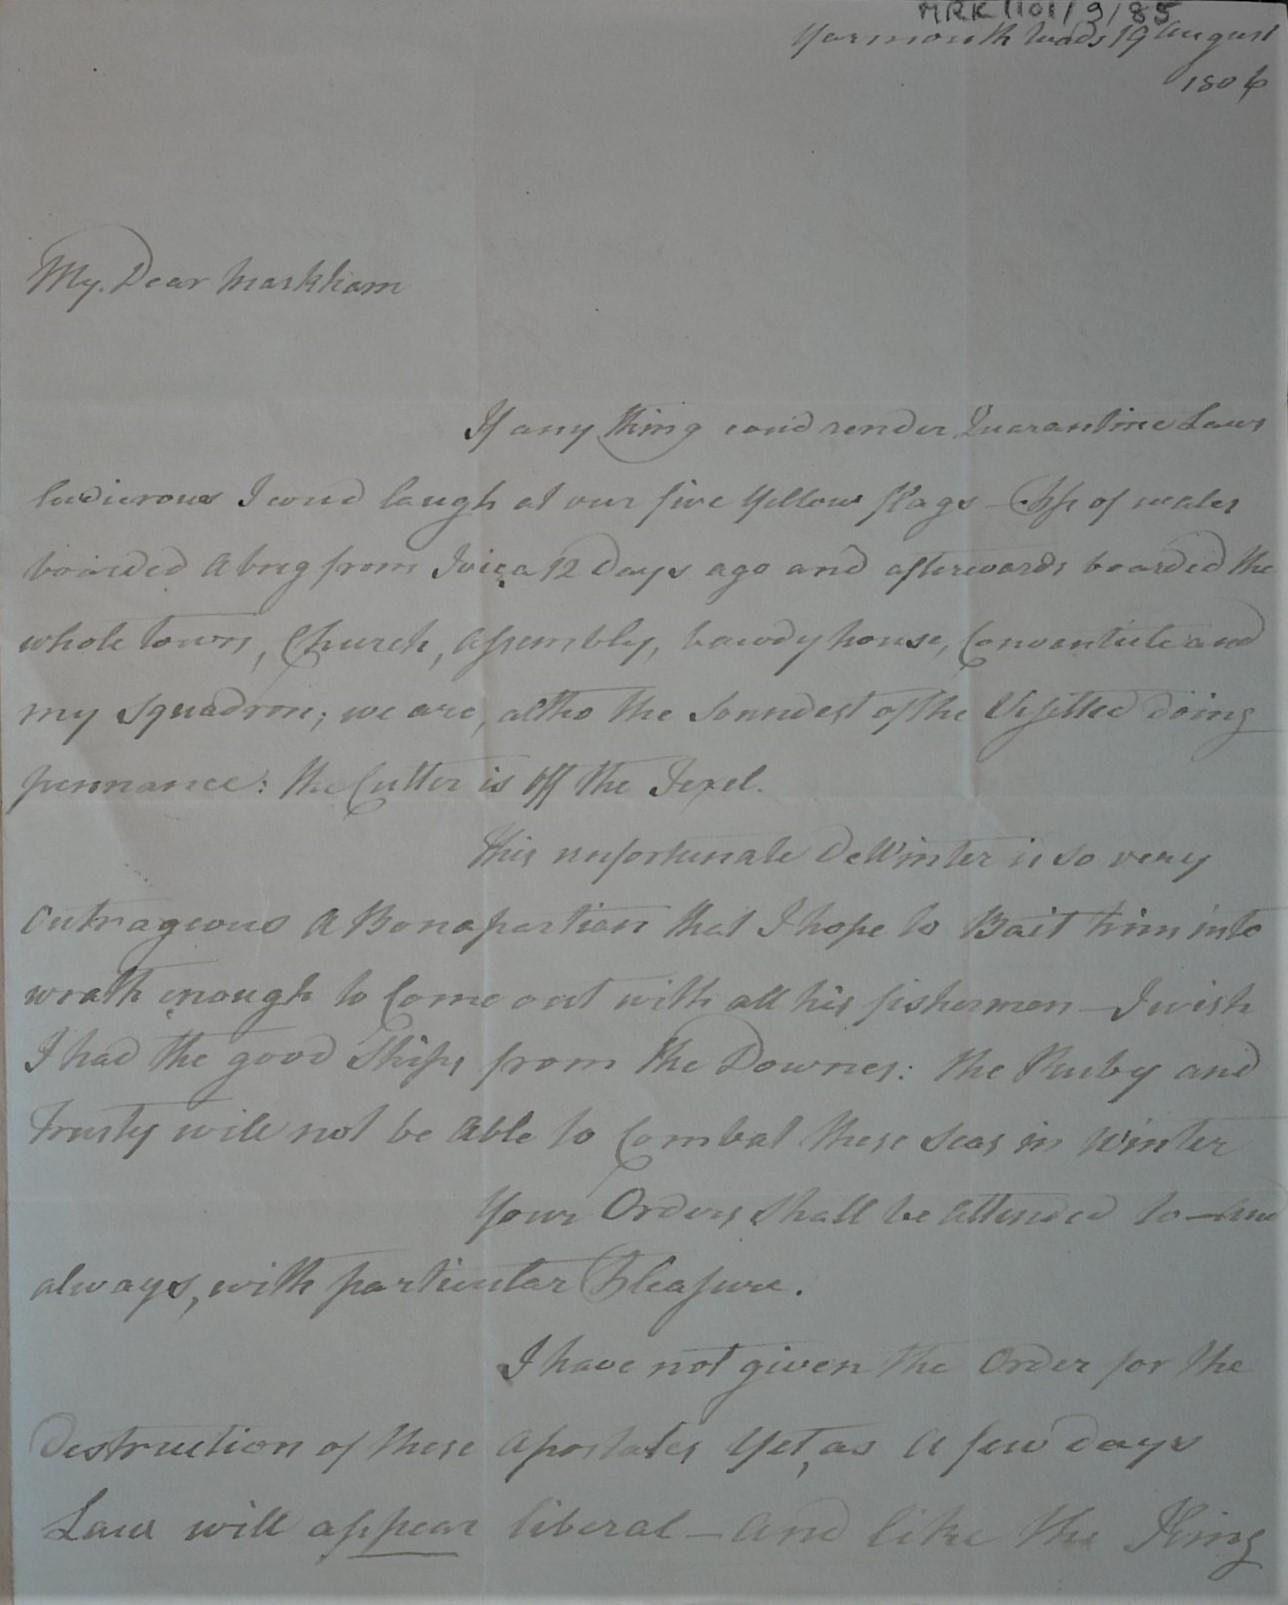 MRK/101/9/85
Yarmouth Roads 19 August
1806
My Dear Markham
If any thing coud render Quarantine Laws
ludicrous I coud laugh at our five Yellow flags - of wales
boarded A brig from Ivica 12 Days ago and afterwards boarded the
whole town, Church, Assembly, bawdy house, Conventicle and
my Squadron; we are, altho the Soundest of the Visitted doing
pennance: the Cutter is off the Texel.
this unfortunate DeWinter is so very
Outrageous A Bonapartian that I hope to Bait him into
wrath enough to Come out with all his fishermen - I wish
I had the good Ships from the Downes: the Ruby and
Trusty will not be Able to Combat these Seas in Winter
Your Orders shall be Attended to - and
always, with particular Pleasure.
I have not given the Order for the
Destruction of these Apostates Yet, as A few days
Law will appear liberal - And like the King